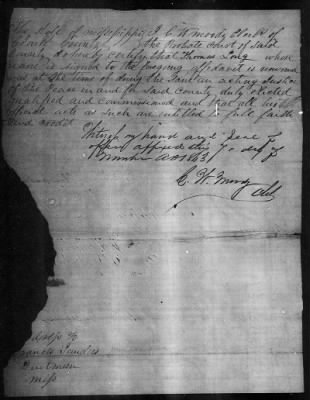 The State of mississippi I C W moody Clerk of
Clark County of the Probate Court of said
County do hereby certify that Thomas Long whose
name is signed to the foregoing affidavit is
was at the time of doing the Same an acting Justice
of the Peace in and for Said county duly elected
qualified and commissioned and that all his
official acts as such are entitled to full faith
and credit
Witness my hand and Seal of
office affixed this 7 day of
AD 1863
C. W. Moody
Clk
Francis
Quitman
Miss